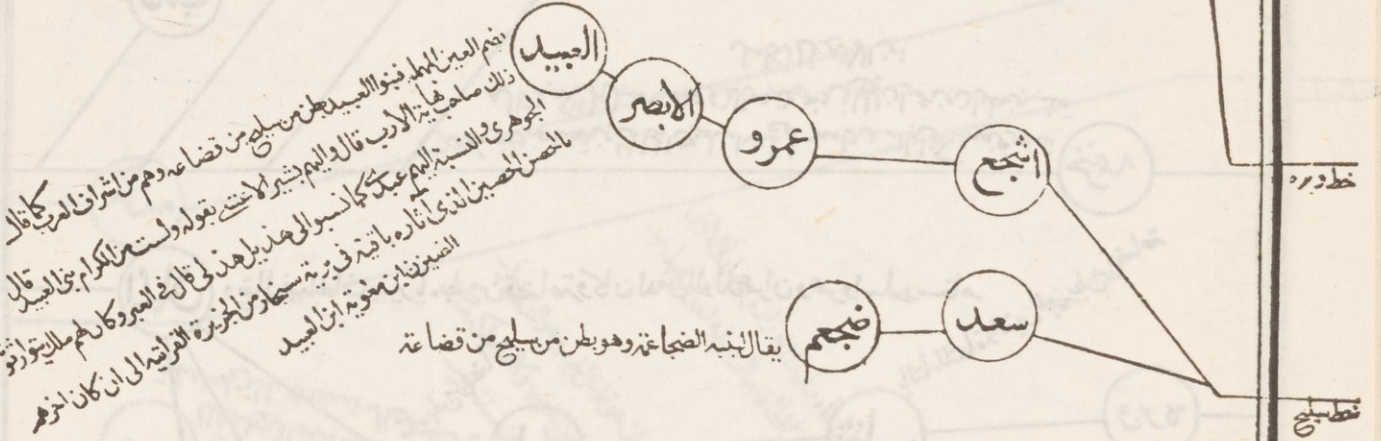 العبيد
الابصر
عمرو
اشجع
خط وبره
بضم العين المهملة فبنوا العبيد بطن من سليح من قضاعه وهم من اشراف العرب كما قال
ذلك صاحب نهاية الارب قال واليهم يشير الاعشى بقوله ولست من الكرام بنى العبيد قال
الجوهرى والنسبة اليهم عبدى كما نسبوا الى هذيل هذلى قال فى العبر وكان لهم ملك يتوارثو
بالحصن الذى اثاره باقية فى برية سنجار من الجزيرة الفراتية الى ان كان اخرهم
الضيزن ابن معوية ابن العبيد
سعد
ضجعم
يقال لبنيه الضجاعمة وهو بطن من سليح من قضاعة
خط سليح